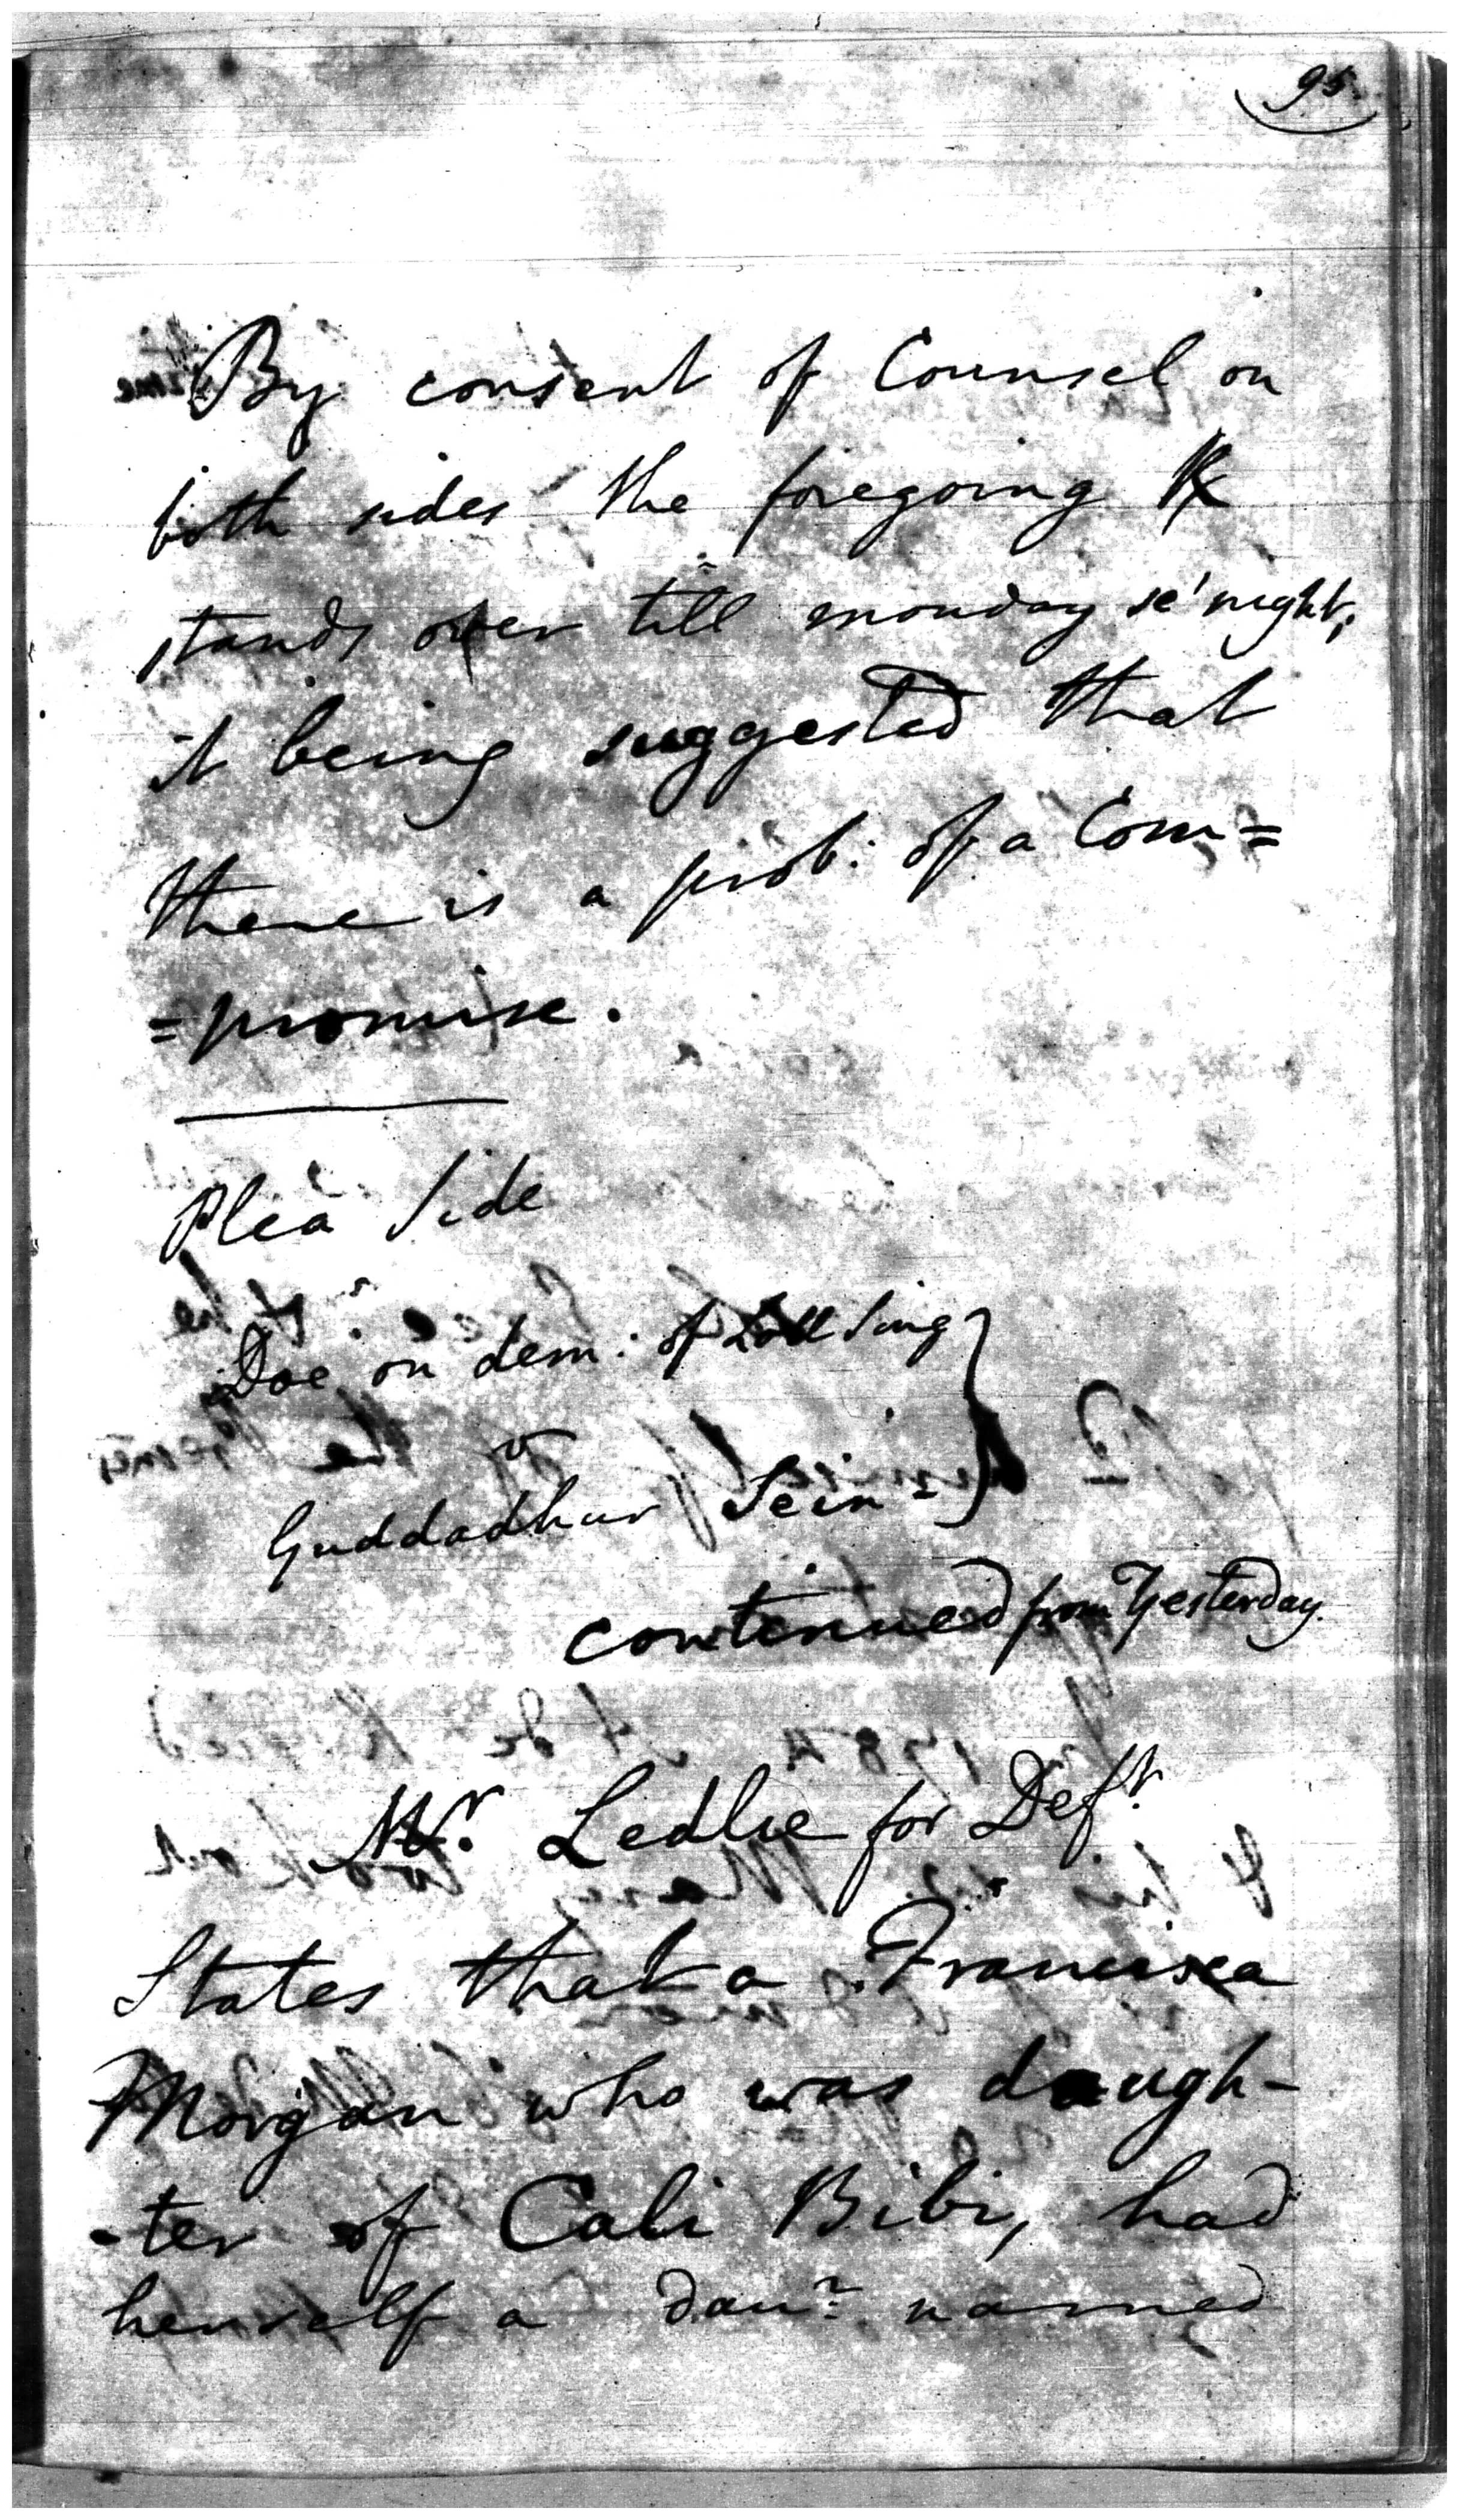 95.
By consent of Counsel on
both sides the foregoing
stands over till monday se'night,
it being suggested that
there is a prob: of a Com=
=promise.
Plea Side
Doe on dem: of Loll Sing
v
Guddadhur Sein =
continued from Yesterday.
Mr. Ledlie for Deft.
States that a Francisca
Morgan who was daugh-
-ter of Cali Bibi, had
herself a daur. named